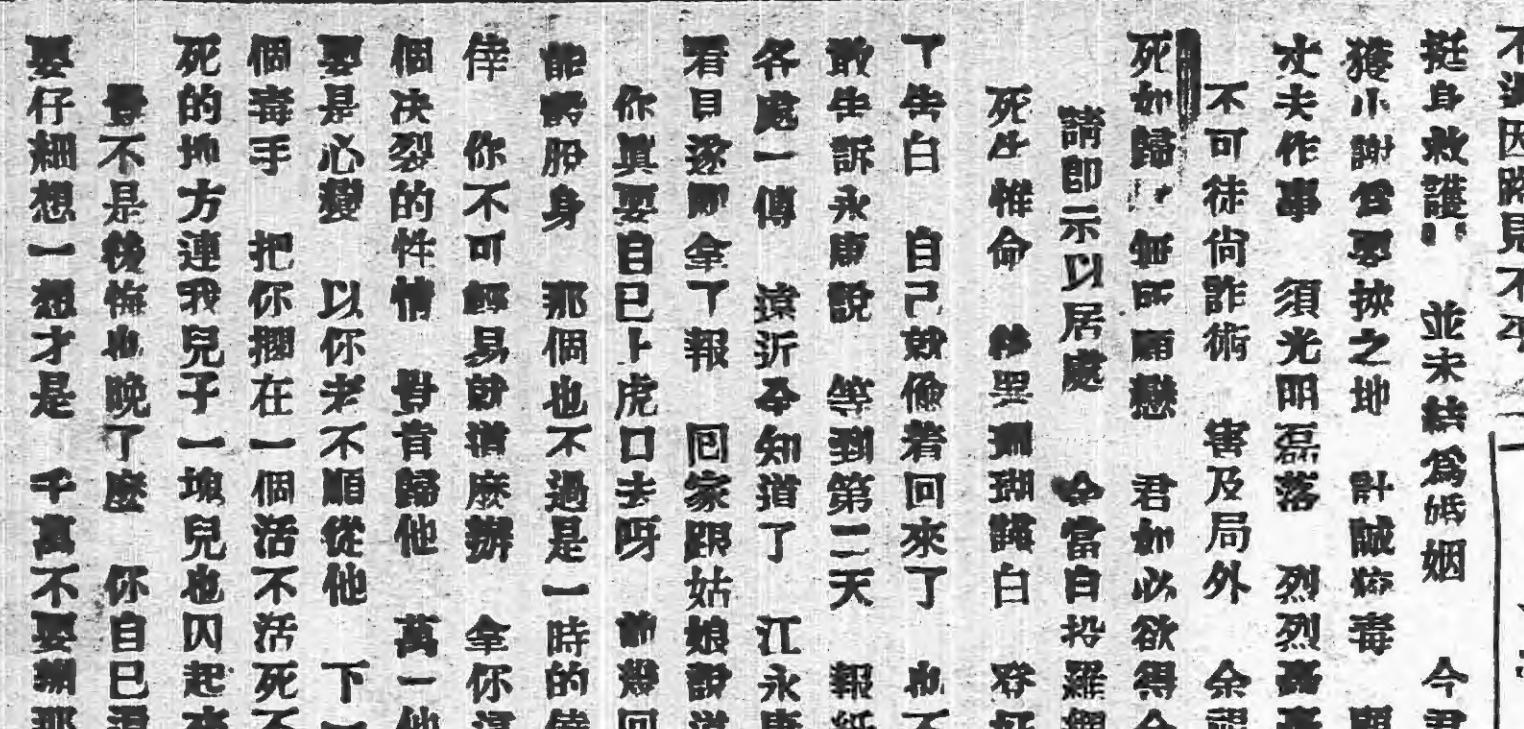 不過因路見不平
挺身救護 並未結爲婚姻 今君
獲小謝爲要挾之地 計誠狡毒 願
丈夫作事 須光明磊落 烈烈轟轟
不可徒尙詐術 害及局外 余視
死如歸 無所顧戀 君如必欲得余
請卽示以居處 余當自投羅網
死生惟命 珊瑚謹白 容
了告白 自己就偸着回來了 也不
敢告訴永康說 等到第二天 報紙
各處一傳 遠近全知道了 江永康
看見遂卽拿了報 囘家跟姑娘說道
你眞要自已上虎口去呀 前幾回
能彀脫身 那個也不過是一時的倖
倖 你不可輕易就這麽辦 拿你這
個决裂的性情 豈肯歸他 萬一他
要是心變 以你老不順從他 下一
個毒手 把你擱在一個活不活死不
死的地方連我兒子一塊兒也囚起來
豈不是後悔也晚了麽 你自已
要仔細想一想才是 千萬不要